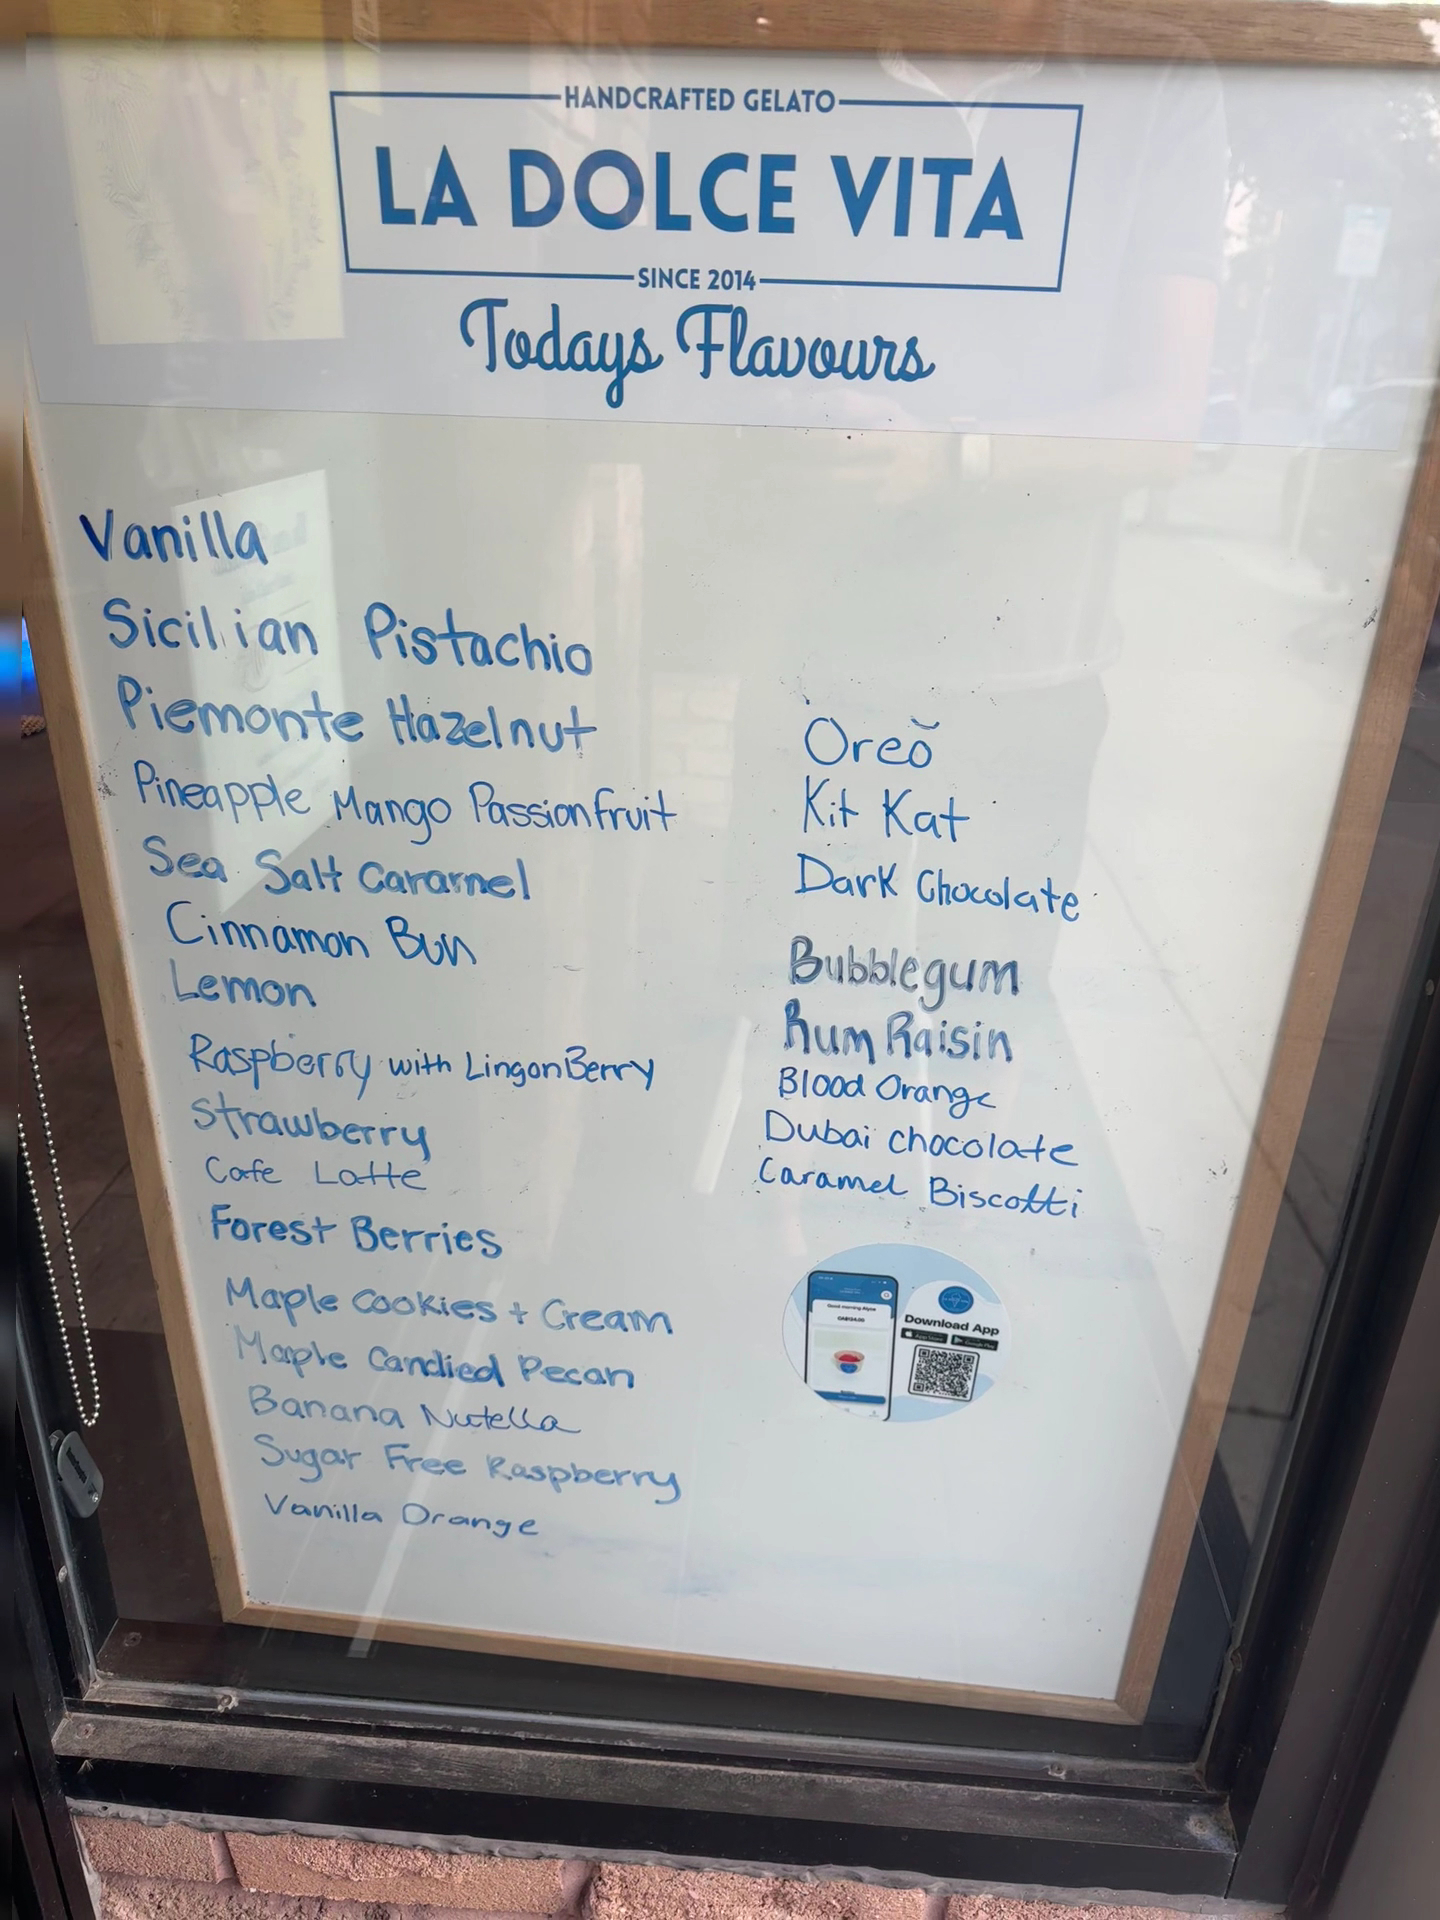 HANDCRAFTED GELATO
LA DOLCE VITA
SINCE 2014
Todays Flavours
Vanilla
Sicilian Pistachio
Piemonte Hazelnut
Pineapple Mango Passionfruit
Sea Salt Caramel
Cinnamon Bun
Lemon
Raspberry with LingonBerry
Strawberry
Cafe Latte
Forest Berries
Maple Cookies + Cream
Maple Candied Pecan
Banana Nutella
Sugar Free Raspberry
Vanilla Orange
Oreo
Kit Kat
Dark Chocolate
Bubblegum
Rum Raisin
Blood Orange
Dubai chocolate
Caramel Biscotti
Download App
App Store
Google Play